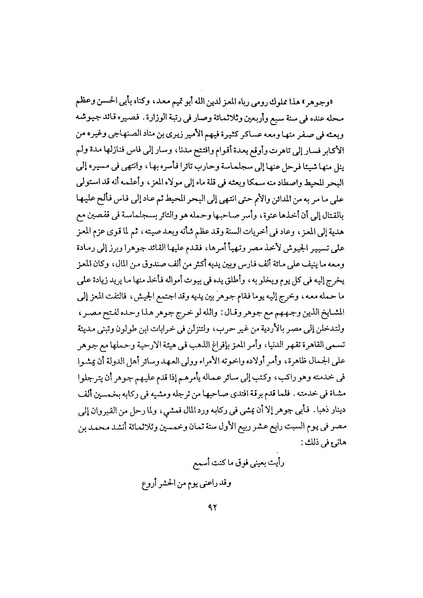 «وجوهر» هذا مملوك رومى رباه المعز لدين الله أبو تميم معد، وكناه بأبى الحسن وعظم
محله عنده فى سنة سبع وأربعين وثلاثمائة وصار فى رتبة الوزارة. فصيره قائد جيوشه
وبعثه فى صفر منها ومعه عساكر كثيرة فيهم الأمير زيرى بن مناد الصنهاجى وغيره من
الأكابر فسار إلى تاهرت وأوقع بعدة أقوام وافتتح مدنا، وسار إلى فاس فنازلها مدة ولم
ينل منها شيئا فرحل عنها إلى سجلماسة وحارب ثائرا فأسره بها، وانتهى فى مسيره إلى
البحر المحيط واصطاد منه سمكا وبعثه فى قلة ماء إلى مولاه المعز، وأعلمه أنه قد استولى
على ما مر به من المدائن والأمم حتى انتهى إلى البحر المحيط ثم عاد إلى فاس فألح عليها
بالقتال إلى أن أخذها عنوة، وأسر صاحبها وحمله هو والثائر بسجلماسة فى قفصين مع
هدية إلى المعز، وعاد فى أخريات السنة وقد عظم شأنه وبعد صيته، ثم لما قوى عزم المعز
على تسيير الجيوش لأخذ مصر وتهيأ أمرها، فقدم عليها القائد جوهرا وبرز إلى رمادة
ومعه ما ينيف على مائة ألف فارس وبين يديه أكثر من ألف صندوق من المال، وكان المعز
يخرج إليه فى كل يوم ويخلو به، وأطلق يده فى بيوت أمواله فأخذ منها ما يريد زيادة على
ما حمله معه، وخرج إليه يوما فقام جوهر بين يديه وقد اجتمع الجيش، فالتفت المعز إلى
المشايخ الذين وجههم مع جوهر وقال: والله لو خرج جوهر هذا وحده لفتح مصر،
ولتدخلن إلى مصر بالأردية من غير حرب، ولتنزلن فى خرابات ابن طولون وتبنى مدينة
تسمى القاهرة تقهر الدنيا، وأمر المعز بإفراغ الذهب فى هيئة الارحية وحملها مع جوهر
على الجمال ظاهرة، وأمر أولاده واخوته الأمراء وولى العهد وسائر أهل الدولة أن يمشوا
فى خدمته وهو راكب، وكتب إلى سائر عماله يأمرهم إذا قدم عليهم جوهر أن يترجلوا
مشاة فى خدمته. فلما قدم برقة افتدى صاحبها من ترجله ومشيه فى ركابه بخمسين ألف
دينار ذهبا. فأبى جوهر إلا أن يمشى فى ركابه ورد المال فمشى، ولما رحل من القيروان إلى
مصر فى يوم السبت رابع عشر ربيع الأول سنة ثمان وخمسين وثلاثمائة أنشد محمد بن
هانئ فى ذلك:
رأيت بعينى فوق ما كنت أسمع
وقد راعنى يوم من الحشر أروع
٩٢